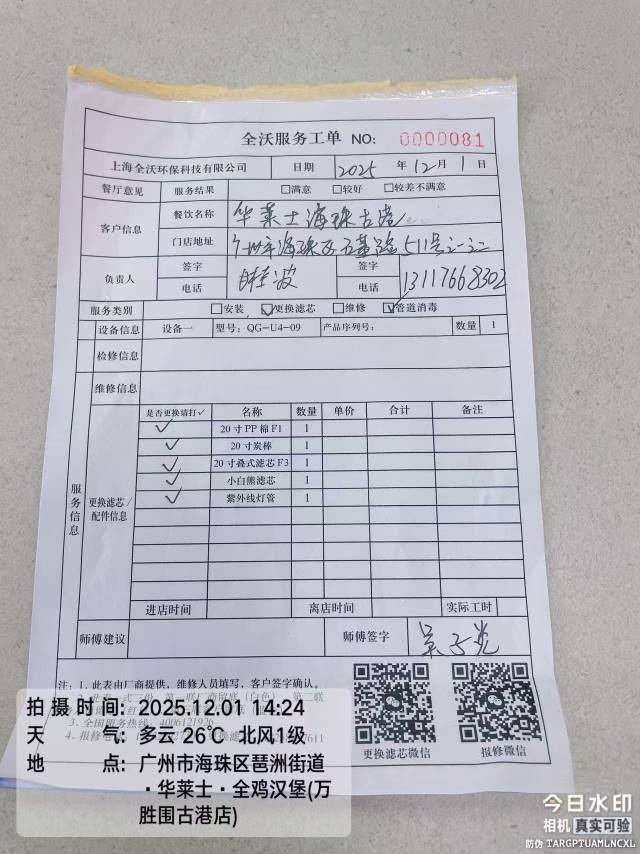 全沃服务工单 NO: 0000081
上海全沃环保科技有限公司 日期 2025 年 12 月 1 日
餐厅意见 服务结果 □满意 □较好 □较差不满意
客户信息 餐饮名称 华莱士海珠古港
门店地址 广州市海珠区石基路511号之一之二
负责人 签字 波 签字
电话 电话 13117668302
服务类别 □安装 ☑更换滤芯 □维修 ☑管道消毒
设备信息 设备一 型号: QG-U4-09 产品序列号: 数量 1
检修信息
维修信息
服务信息
更换滤芯/配件信息
是否更换请打✓ 名称 数量 单价 合计 备注
✓ 20寸PP棉F1 1
✓ 20寸炭棒 1
✓ 20寸叠式滤芯F3 1
✓ 小白熊滤芯 1
✓ 紫外线灯管 1
进店时间 离店时间 实际工时
师傅建议 师傅签字 吴子
注: 1. 此表由厂商提供, 维修人员填写, 客户签字确认。
3. 全国服务热线: 4006121926
更换滤芯微信 报修微信
拍摄时间: 2025.12.01 14:24
天气: 多云 26℃ 北风1级
地点: 广州市海珠区琶洲街道
·华莱士·全鸡汉堡(万
胜围古港店)
今日水印
相机 真实可验
防伪 TARGPTUAMLNCXL